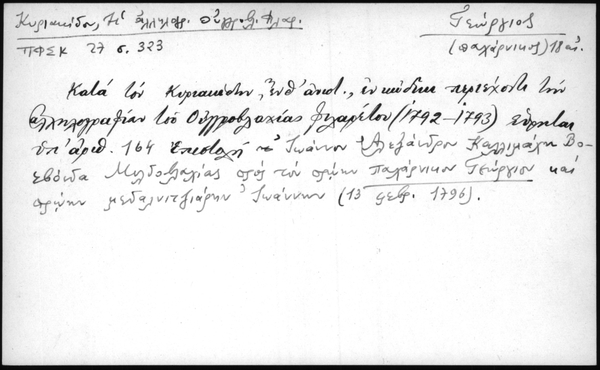 Κυριακίδου, Αἱ ἀλληλογρ. Οὐγγρ. Φιλαρ.
Γεώργιος
ΠΦΣΚ 27 σ. 323
(παχάρνικος) 18 αἰ.
Κατὰ τὸν Κυριακίδην, ἔνθ' ἀνωτ., ἐν κώδικι περιέχοντι τὴν
ἀλληλογραφίαν τοῦ Οὐγγροβλαχίας Φιλαρέτου (1792-1793) εὕρηται
ὑπ' ἀριθ. 164 Ἐπιστολὴ Ἰωάννου Ἀλεξάνδρου Καλλιμάχη Βο-
εβόδα Μολδοβλαχίας πρὸς τὸν πρώην παχάρνικον Γεώργιον καὶ
πρώην μεδελνιτζιάρην Ἰωάννην (13 Φεβρ. 1796).